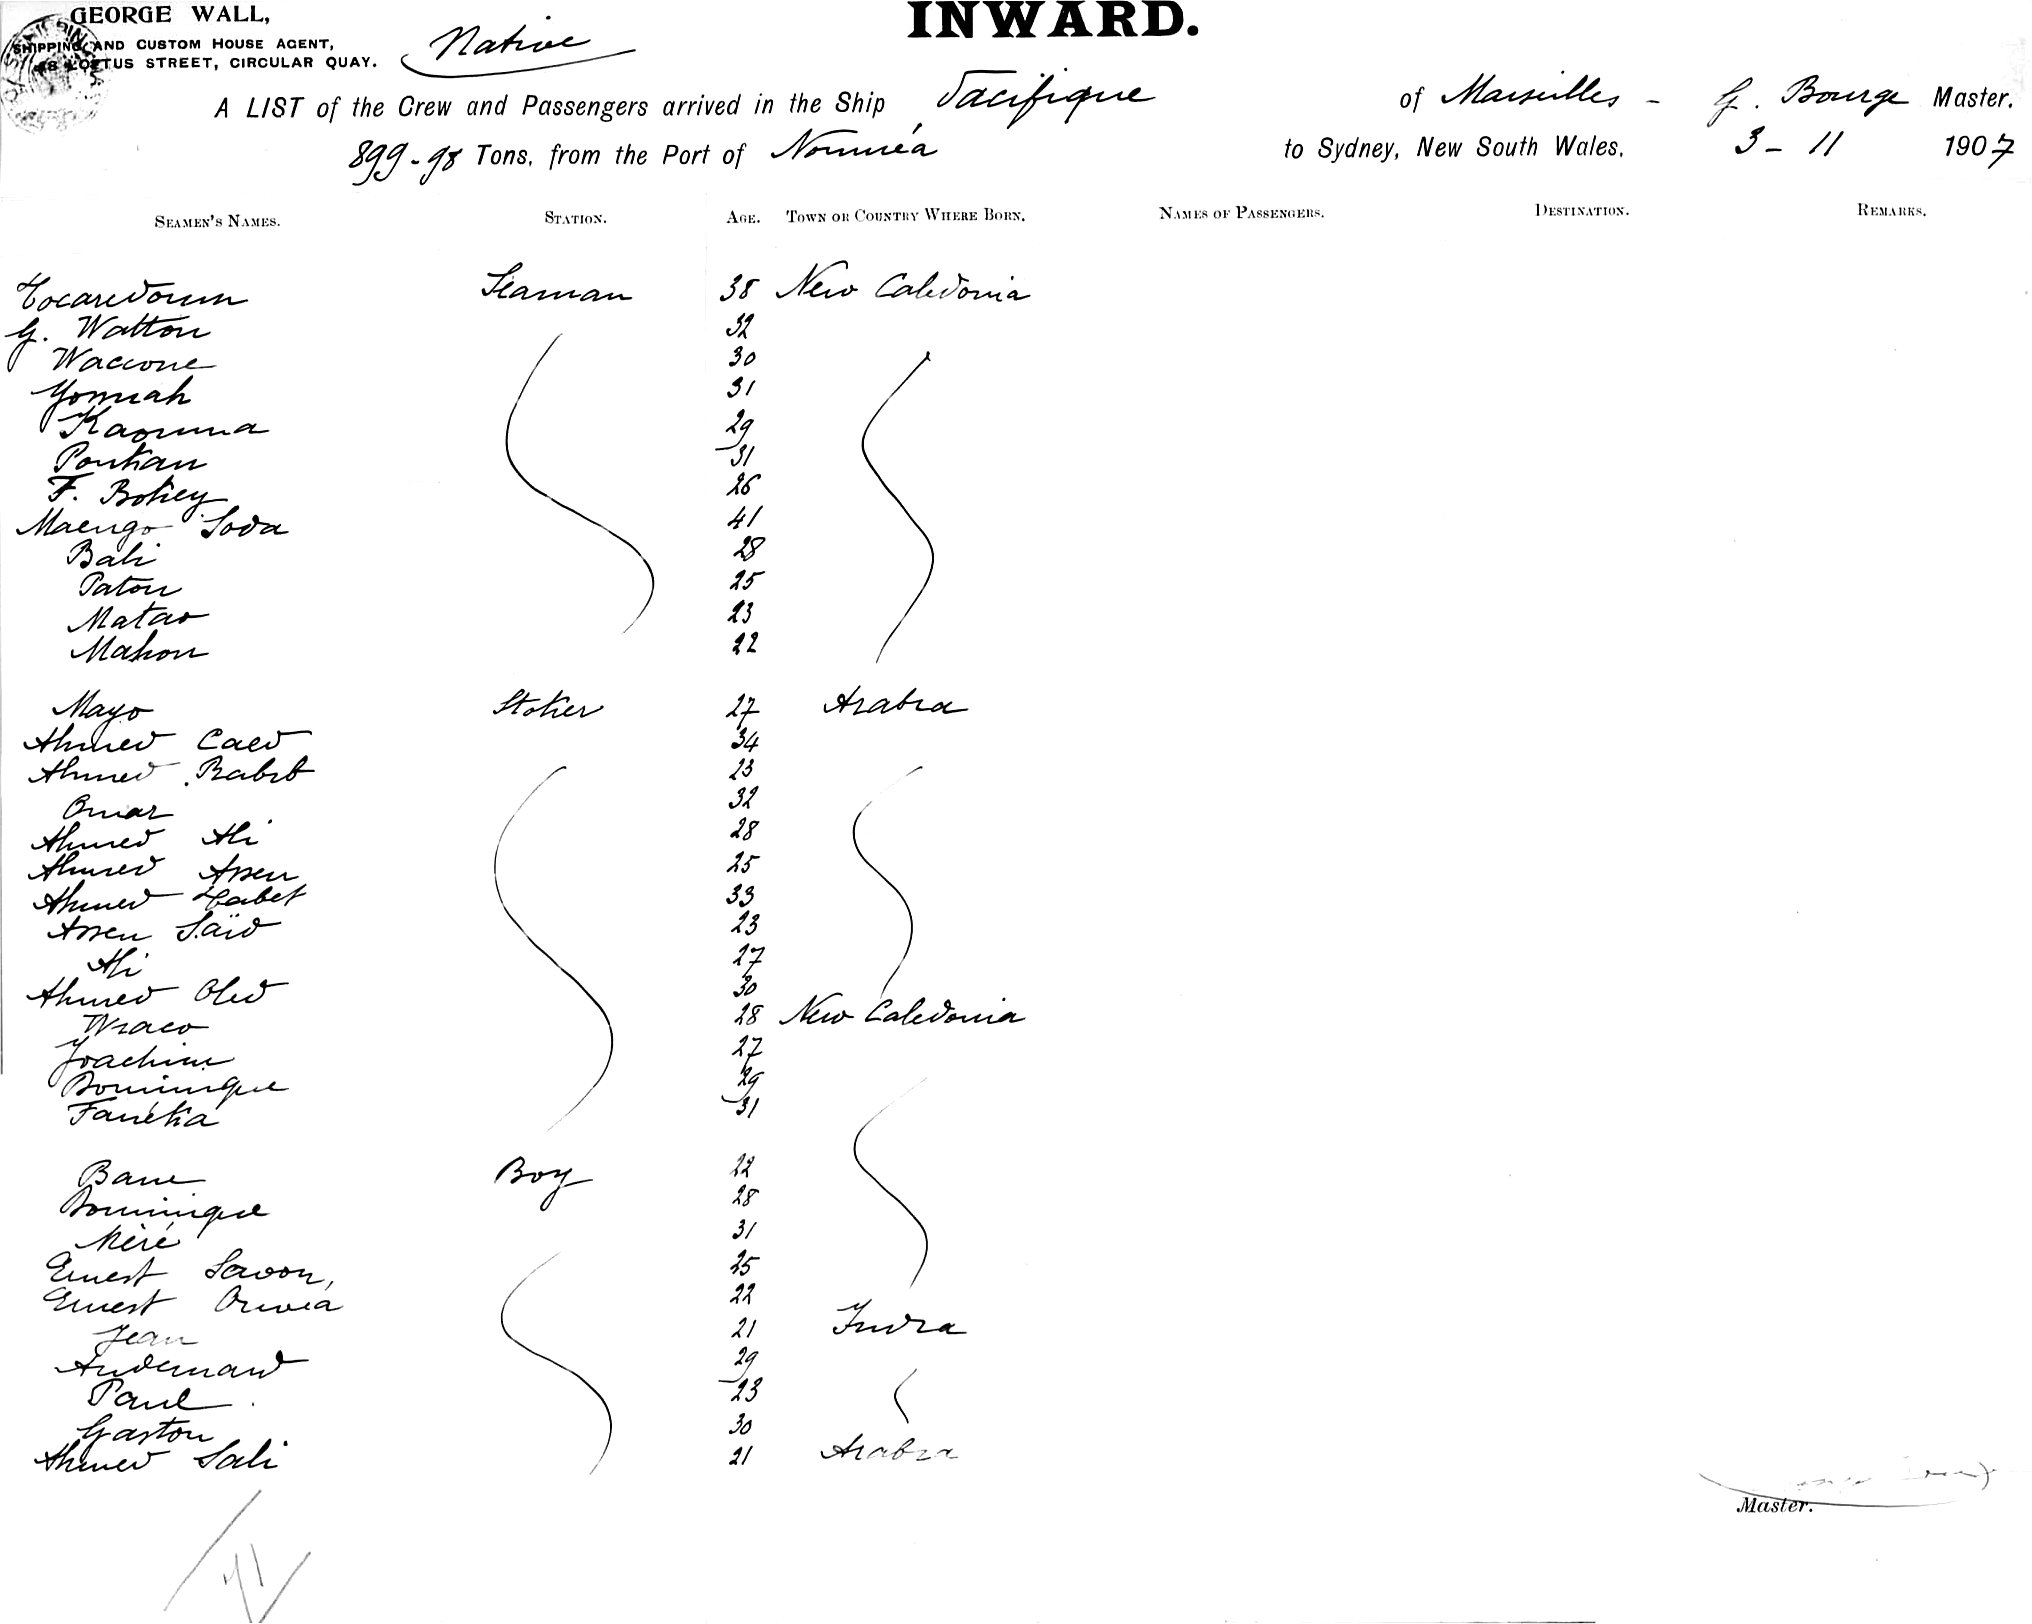 GEORGE WALL,
SHIPPING AND CUSTOM HOUSE AGENT,
48 LOFTUS STREET, CIRCULAR QUAY.
Native
INWARD.
A LIST of the Crew and Passengers arrived in the Ship Pacifique of Marseilles - G. Bourge Master.
899-98 Tons, from the Port of Nouméa to Sydney, New South Wales, 3 - 11 1907
SEAMEN'S NAMES. STATION. AGE. TOWN OR COUNTRY WHERE BORN. NAMES OF PASSENGERS. DESTINATION. REMARKS.
Seaman 38 New Caledonia
G. Watton 32
Waccone 30
31
Kaouma 29
Pontkau 31
F. Bokey 26
Maengo Soda 41
Bali 28
Paton 25
Matao 23
Mahon 22
Mayo Stoker 27 Arabia
Ahmed Caed 34
Ahmed 23
Omar 32
Ahmed Ali 28
Ahmed Assen 25
Ahmed Tabet 33
Assen Saïd 23
Ali 27
Ahmed Oled 30
Wraco 28 New Caledonia
Joachim 27
Dominique 29
Fanéka 31
Bane Boy 22
Dominique 28
Méré 31
Ernest Savon, 25
Ernest 22
Jean 21 India
Andernard 29
Paul 23
Gaston 30
Ahmed Sali 21 Arabia
Master.